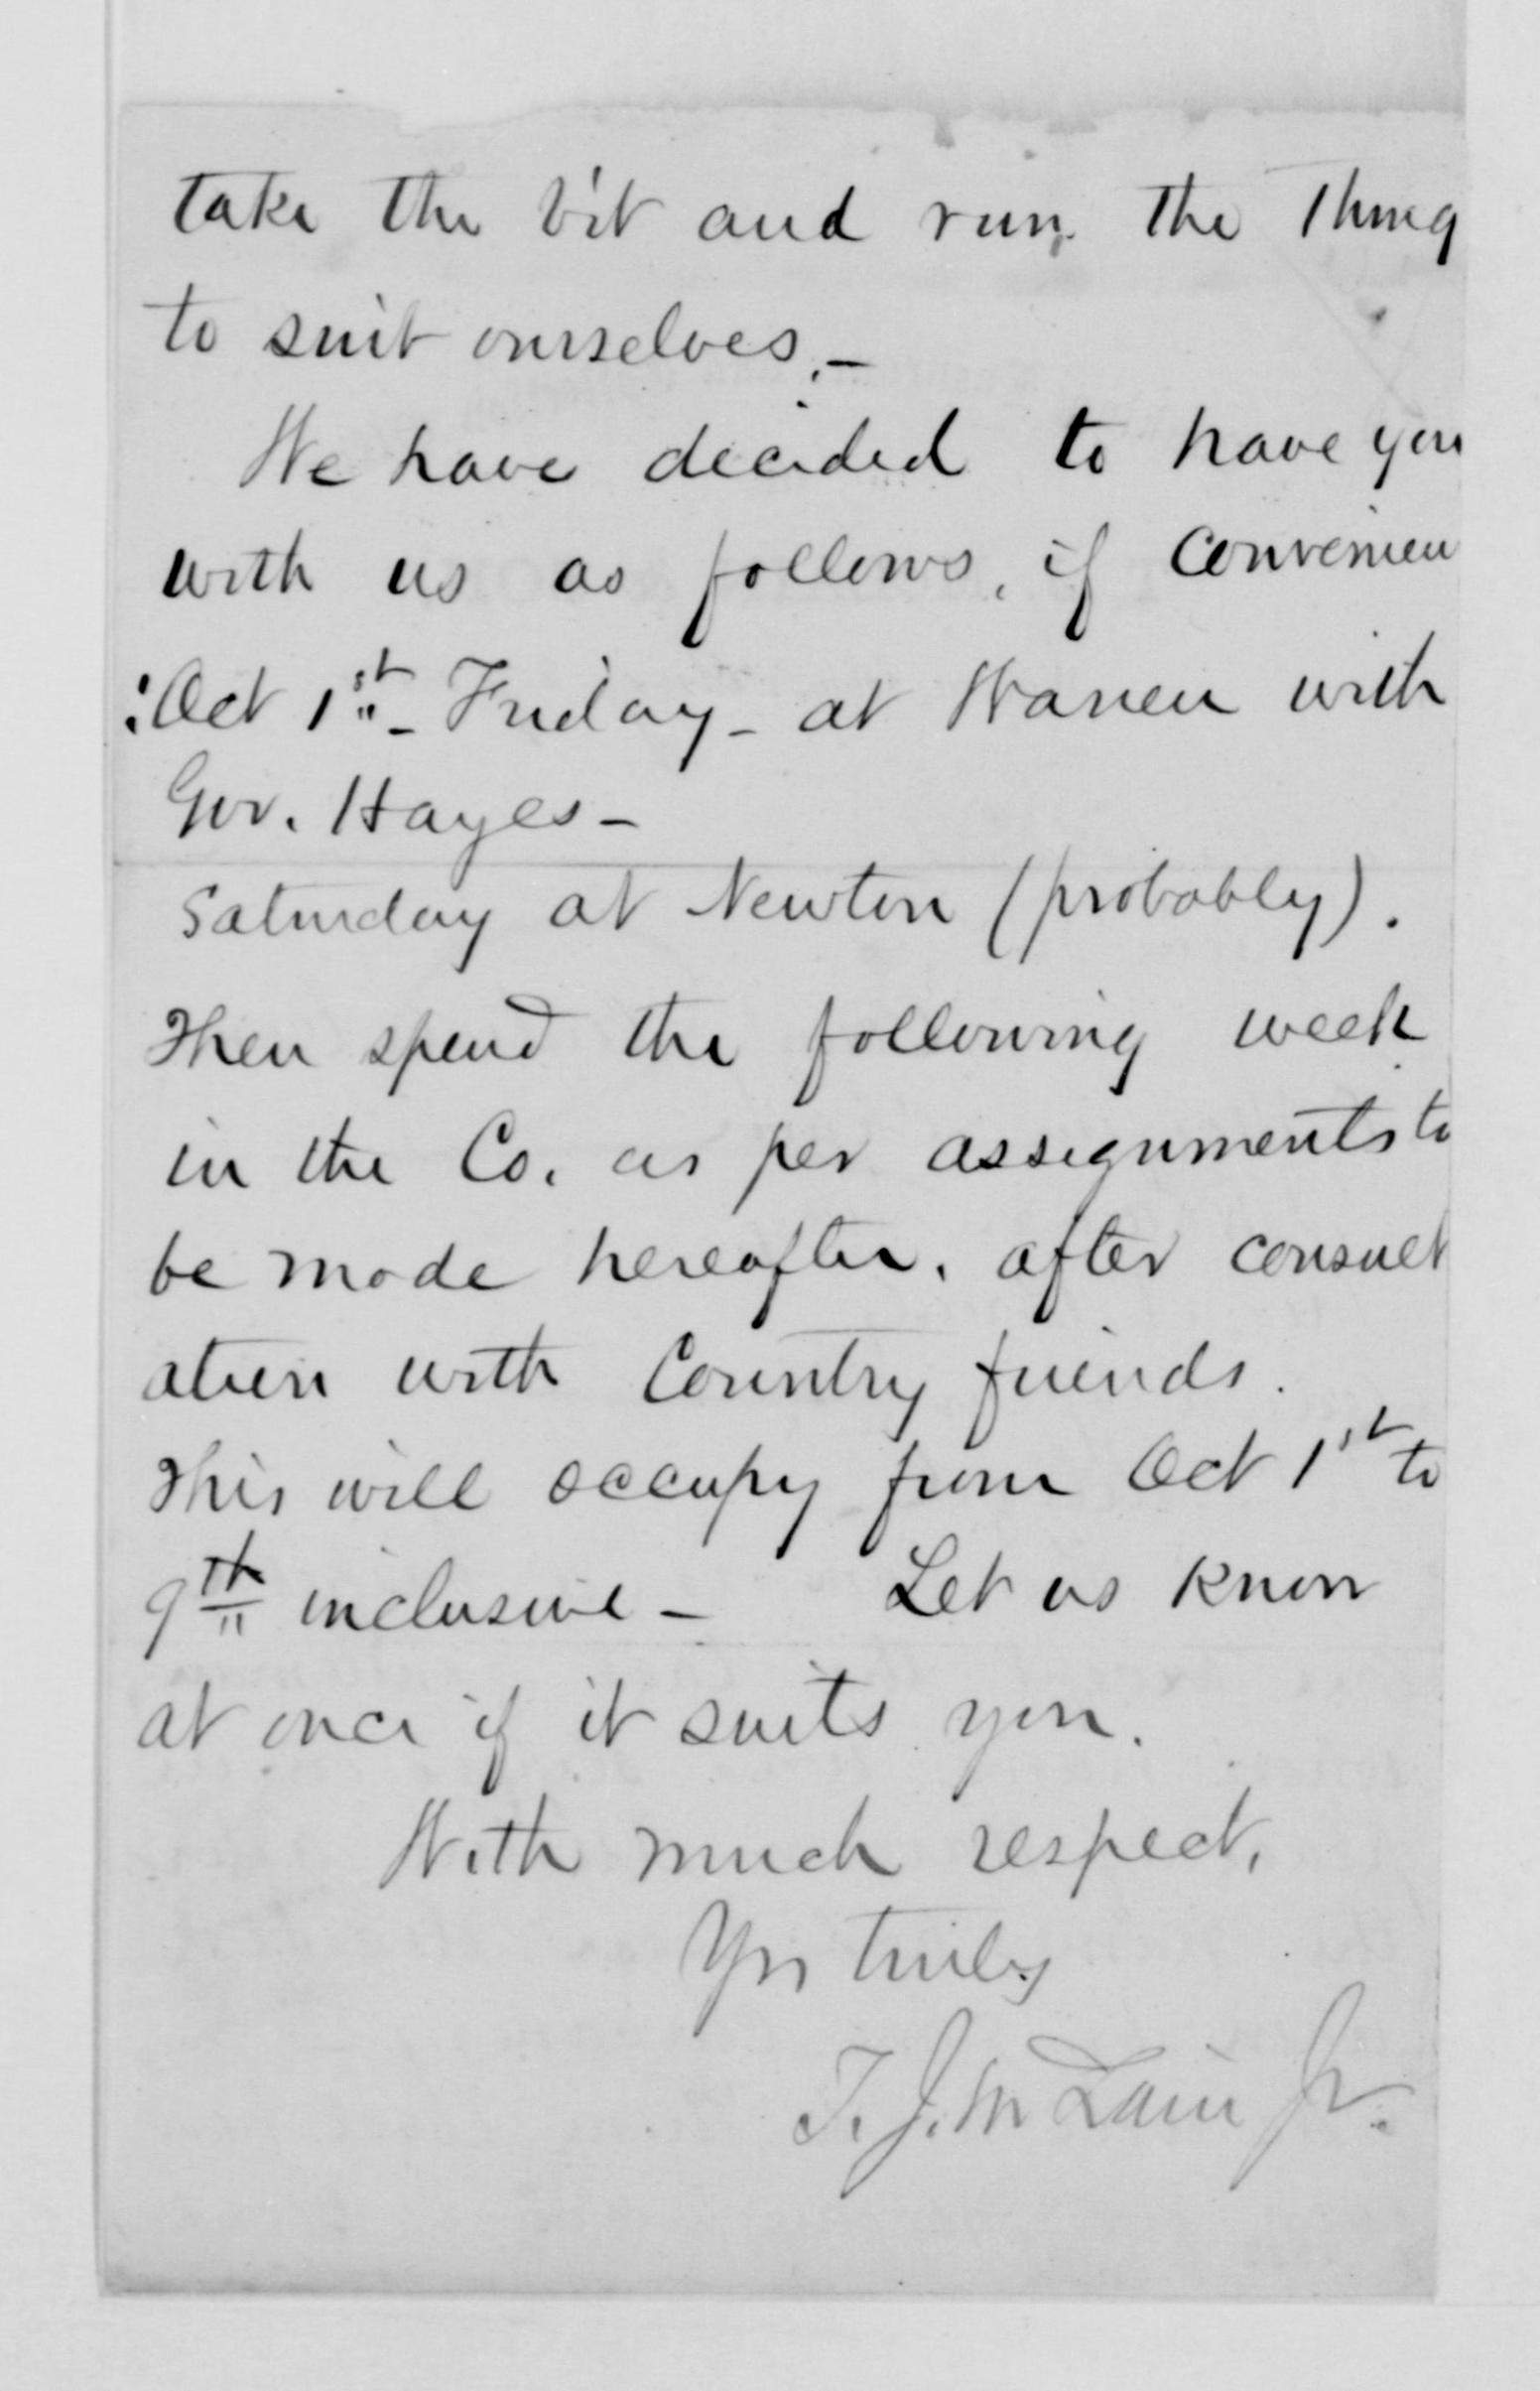 take the bit and run the thing
to suit ourselves. –
We have decided to have you
with us as follows, if convenien
: Oct 1st – Friday – at Warren with
Gov. Hayes –
Saturday at Newton (probably).
Then spend the following week
in the Co. as per assignments to
be made hereafter, after consult
ation with Country friends.
This will occupy from Oct 1st to
9th inclusive – Let us know
at once if it suits you.
With much respect,
Yrs truly
T. J. McLain Jr.